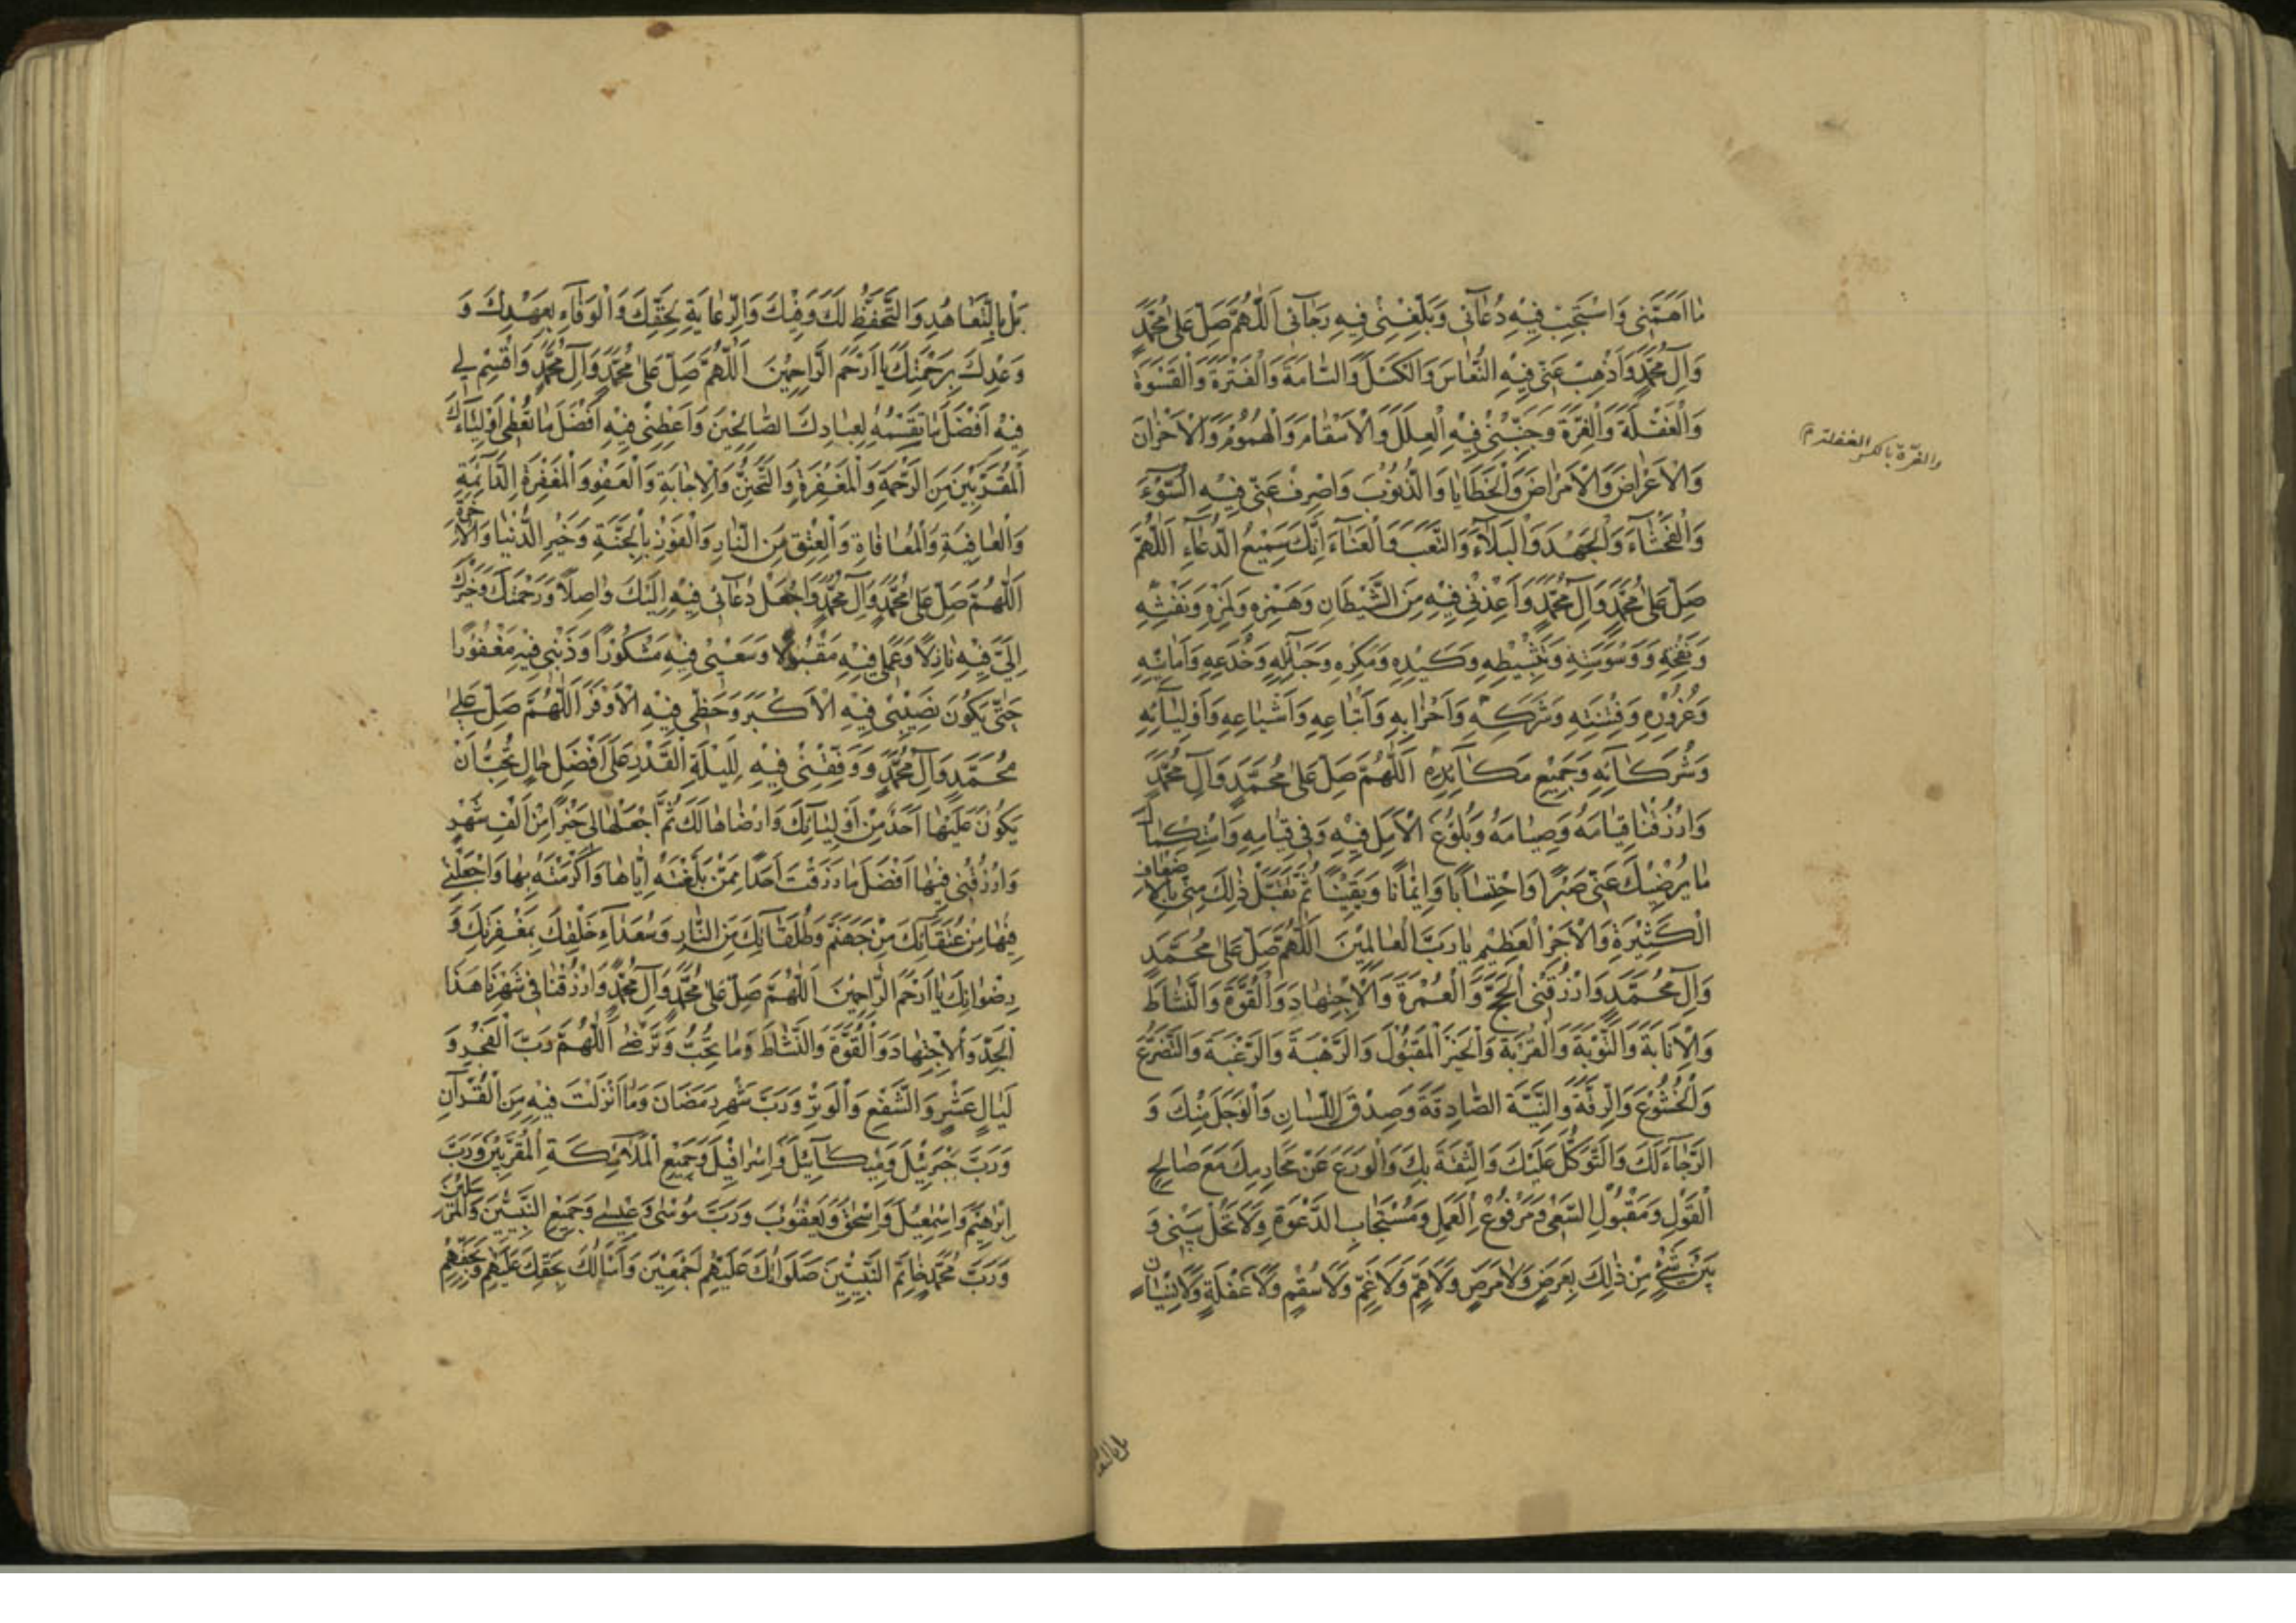 مَا اَهَمَّنِى وَاسْتَجِبْ فِيْهِ دُعَآئِى وَبَلِّغْنِىْ فِيهِ رَجَآئِى اَللّٰهُمَّ صَلِّ عَلٰى مُحَمَّدٍ
وَآلِ مُحَمَّدٍ وَاَذْهِبْ عَنِّى فِيْهِ النُّعَاسَ وَالْكَسَلَ وَالسَّامَةَ وَالْفَتْرَةَ وَالْقَسْوَةَ
وَالْغَفْلَةَ وَالْغِرَّةَ وَجَنِّبْنِىْ فِيْهِ الْعِلَلَ وَالْاَسْقَامَ وَالْهُمُوْمَ وَالْاَحْزَانَ
والغرّة بالكسر الغفلة م
وَالْاَعْرَاضَ وَالْاَمْرَاضَ وَالْخَطَايَا وَالذُّنُوْبَ وَاصْرِفْ عَنِّى فِيْهِ السُّوْءَ
وَالْفَحْشَآءَ وَالْجَهْدَ وَالْبَلَآءَ وَالتَّعَبَ وَالْعَنَآءَ اِنَّكَ سَمِيْعُ الدُّعَآءِ اَللّٰهُمَّ
صَلِّ عَلٰى مُحَمَّدٍ وَآلِ مُحَمَّدٍ وَاَعِذْنِىْ فِيْهِ مِنَ الشَّيْطَانِ وَهَمْزِهِ وَلَمْزِهِ وَنَفْثِهِ
وَنَفْخِهِ وَوَسْوَسَتِهِ وَتَثْبِيْطِهِ وَكَيْدِهِ وَمَكْرِهِ وَحَبَائِلِهِ وَخُدَعِهِ وَاَمَانِيِّهِ
وَغُرُوْرِهِ وَفِتْنَتِهِ وَشَرَكِهِ وَاَحْزَابِهِ وَاَتْبَاعِهِ وَاَشْيَاعِهِ وَاَوْلِيَائِهِ
وَشُرَكَائِهِ وَجَمِيْعِ مَكَآئِدِهِ اَللّٰهُمَّ صَلِّ عَلٰى مُحَمَّدٍ وَآلِ مُحَمَّدٍ
وَارْزُقْنَا قِيَامَهُ وَصِيَامَهُ وَبُلُوْغَ الْاَمَلِ فِيْهِ وَفِى قِيَامِهِ وَاسْتِكْمَالَ
مَا يُرْضِيْكَ عَنِّى صَبْرًا وَاحْتِسَابًا وَاِيْمَانًا وَيَقِيْنًا ثُمَّ تَقَبَّلْ ذٰلِكَ مِنِّى بِالْاَضْعَافِ
الْكَثِيْرَةِ وَالْاَجْرِ الْعَظِيْمِ يَا رَبَّ الْعَالَمِيْنَ اَللّٰهُمَّ صَلِّ عَلٰى مُحَمَّدٍ
وَآلِ مُحَمَّدٍ وَارْزُقْنِى الْحَجَّ وَالْعُمْرَةَ وَالْاِجْتِهَادَ وَالْقُوَّةَ وَالنَّشَاطَ
وَالْاِنَابَةَ وَالتَّوْبَةَ وَالْقُرْبَةَ وَالْخَيْرَ الْمَقْبُوْلَ وَالرَّهْبَةَ وَالرَّغْبَةَ وَالتَّضَرُّعَ
وَالْخُشُوْعَ وَالرِّقَّةَ وَالنِّيَّةَ الصَّادِقَةَ وَصِدْقَ اللِّسَانِ وَالْوَجَلَ مِنْكَ وَ
الرَّجَآءَ لَكَ وَالتَّوَكُّلَ عَلَيْكَ وَالثِّقَةَ بِكَ وَالْوَرَعَ عَنْ مَحَارِمِكَ مَعَ صَالِحِ
الْقَوْلِ وَمَقْبُوْلِ السَّعْىِ وَمَرْفُوْعِ الْعَمَلِ وَمُسْتَجَابِ الدَّعْوَةِ وَلَا تَحُلْ بَيْنِى وَ
بَيْنَ شَىْءٍ مِنْ ذٰلِكَ بِعَرَضٍ وَلَا مَرَضٍ وَلَا هَمٍّ وَلَا غَمٍّ وَلَا سُقْمٍ وَلَا غَفْلَةٍ وَلَا نِسْيَانٍ
بل بالتعا
بَلْ بِالتَّعَاهُدِ وَالتَّحَفُّظِ لَكَ وَفِيْكَ وَالرِّعَايَةِ لِحَقِّكَ وَالْوَفَآءِ بِعَهْدِكَ وَ
وَعْدِكَ بِرَحْمَتِكَ يَا اَرْحَمَ الرَّاحِمِيْنَ اَللّٰهُمَّ صَلِّ عَلٰى مُحَمَّدٍ وَآلِ مُحَمَّدٍ وَاقْسِمْ لِى
فِيْهِ اَفْضَلَ مَا تَقْسِمُهُ لِعِبَادِكَ الصَّالِحِيْنَ وَاَعْطِنِىْ فِيْهِ اَفْضَلَ مَا تُعْطِى اَوْلِيَآءَكَ
الْمُقَرَّبِيْنَ مِنَ الرَّحْمَةِ وَالْمَغْفِرَةِ وَالتَّحَنُّنِ وَالْاِجَابَةِ وَالْعَفْوِ وَالْمَغْفِرَةِ الدَّآئِمَةِ
وَالْعَافِيَةِ وَالْمُعَافَاةِ وَالْعِتْقِ مِنَ النَّارِ وَالْفَوْزِ بِالْجَنَّةِ وَخَيْرِ الدُّنْيَا وَالْآخِرَةِ
اَللّٰهُمَّ صَلِّ عَلٰى مُحَمَّدٍ وَآلِ مُحَمَّدٍ وَاجْعَلْ دُعَآئِى فِيْهِ اِلَيْكَ وَاصِلًا وَرَحْمَتَكَ وَخَيْرَكَ
اِلَىَّ فِيْهِ نَازِلًا وَعَمَلِى فِيْهِ مَقْبُوْلًا وَسَعْيِىْ فِيْهِ مَشْكُوْرًا وَذَنْبِى فِيْهِ مَغْفُوْرًا
حَتّٰى يَكُوْنَ نَصِيْبِىْ فِيْهِ الْاَكْبَرَ وَحَظِّى فِيْهِ الْاَوْفَرَ اَللّٰهُمَّ صَلِّ عَلٰى
مُحَمَّدٍ وَآلِ مُحَمَّدٍ وَوَفِّقْنِىْ فِيْهِ لِلَيْلَةِ الْقَدْرِ عَلٰى اَفْضَلِ حَالٍ تُحِبُّ اَنْ
يَكُوْنَ عَلَيْهَا اَحَدٌ مِنْ اَوْلِيَآئِكَ وَارْضَاهَا لَكَ ثُمَّ اجْعَلْهَا لِى خَيْرًا مِنْ اَلْفِ شَهْرٍ
وَارْزُقْنِى فِيْهَا اَفْضَلَ مَا رَزَقْتَ اَحَدًا مِمَّنْ بَلَّغْتَهُ اِيَّاهَا وَاَكْرَمْتَهُ بِهَا وَاجْعَلْنِىْ
فِيْهَا مِنْ عُتَقَآئِكَ مِنْ جَهَنَّمَ وَطُلَقَآئِكَ مِنَ النَّارِ وَسُعَدَآءِ خَلْقِكَ بِمَغْفِرَتِكَ وَ
رِضْوَانِكَ يَا اَرْحَمَ الرَّاحِمِيْنَ اَللّٰهُمَّ صَلِّ عَلٰى مُحَمَّدٍ وَآلِ مُحَمَّدٍ وَارْزُقْنَا فِى شَهْرِنَا هٰذَا
الْجِدَّ وَالْاِجْتِهَادَ وَالْقُوَّةَ وَالنَّشَاطَ وَمَا تُحِبُّ وَتَرْضٰى اَللّٰهُمَّ رَبَّ الْفَجْرِ وَ
لَيَالٍ عَشْرٍ وَالشَّفْعِ وَالْوَتْرِ وَرَبَّ شَهْرِ رَمَضَانَ وَمَا اَنْزَلْتَ فِيْهِ مِنَ الْقُرْآنِ
وَرَبَّ جِبْرَئِيْلَ وَمِيْكَآئِيْلَ وَاِسْرَافِيْلَ وَجَمِيْعِ الْمَلَآئِكَةِ الْمُقَرَّبِيْنَ وَرَبَّ
اِبْرٰهِيْمَ وَاِسْمٰعِيْلَ وَاِسْحٰقَ وَيَعْقُوْبَ وَرَبَّ مُوْسٰى وَعِيْسٰى وَجَمِيْعِ النَّبِيِّيْنَ وَالْمُرْسَلِيْنَ
وَرَبَّ مُحَمَّدٍ خَاتَمِ النَّبِيِّيْنَ صَلَوَاتُكَ عَلَيْهِمْ اَجْمَعِيْنَ وَاَسْاَلُكَ بِحَقِّكَ عَلَيْهِمْ وَبِحَقِّهِمْ